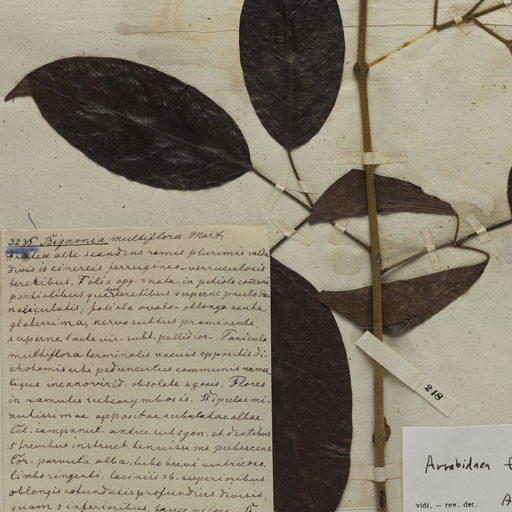 3235 Bignonia multiflora Mart.
Frutex alte scandens ramis plurimis valde
divisis cinereis ferrugineo-verruculosis
teretibus. Folia opp. 3nata, in petiolo communi
partialibusque teretibus superne paulo
naliculatis, foliola ovato-oblonga acuta
glaberrima, nervo subtus prominente,
superne laete vir. subt. pallidior. Panicula
multiflora terminalis vacuis oppositis di
chotomis uti pedunculus communis ramu
lique incanoviridi obsolete 4gonis. Flores
in ramulis subcorymbosis. Stipulae mi-
nutissimae oppositae subulatae albae.
Cal. campanul. antice sub5gon. et dentibus
5 brevibus instruct. tenuissime pubescent
Cor. parvula alba, tubo brevi ventricoso,
limbo ringenti, laciniis 3b. superioribus
oblongis rotundatis profundius divisis,
quam 2 inferioribus,
218
Arrabidaea
vidi, – rev. det. A